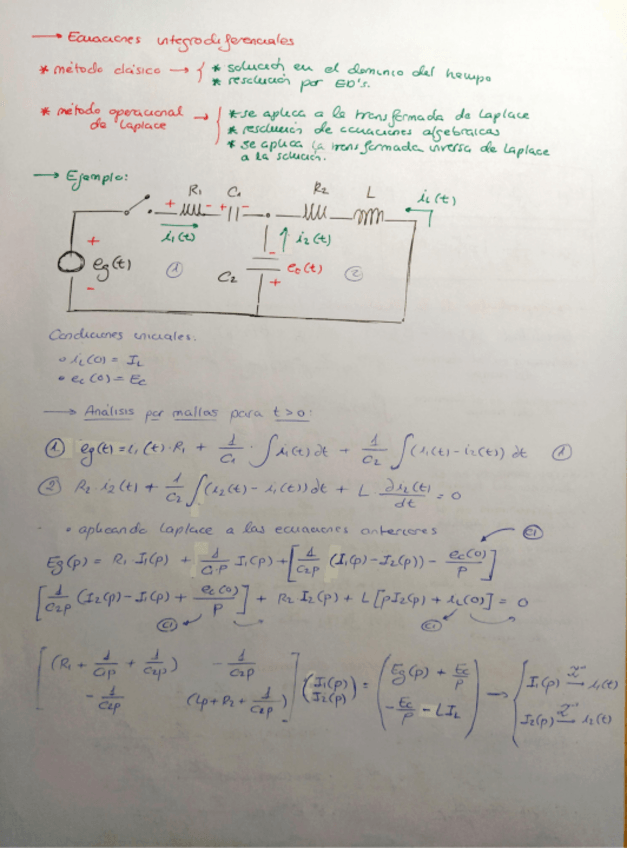 → Ecuaciones integrodiferenciales
* método clásico → { * solución en el dominio del tiempo
* resolución por ED's.
* método operacional de Laplace → { * se aplica a la transformada de Laplace
* resolución de ecuaciones algebraicas
* se aplica la transformada inversa de Laplace
a la solución.
→ Ejemplo:
R1 C1 R2 L iL(t)
+ - + -
i1(t) i2(t)
+ eg(t) - ① C2 - ec(t) + ②
Condiciones iniciales.
∘ iL(0) = IL
∘ ec(0) = Ec
→ Análisis por mallas para t>0:
① eg(t) = i1(t)·R1 + 1/C1 · ∫i1(t)dt + 1/C2 ∫(i1(t)-i2(t))dt ①
② R2·i2(t) + 1/C2 ∫(i2(t)-i1(t))dt + L · ∂i2(t)/dt = 0
• aplicando Laplace a las ecuaciones anteriores CI
Eg(p) = R1·I1(p) + 1/C1p I1(p) + [1/C2p (I1(p)-I2(p)) - ec(0)/p]
[1/C2p (I2(p)-I1(p) + ec(0)/p] + R2 I2(p) + L[pI2(p) + iL(0)] = 0
CI CI
[(R1 + 1/C1p + 1/C2p) -1/C2p] (I1(p)) = (Eg(p) + Ec/p) → { I1(p) ℒ⁻¹→ i1(t)
[-1/C2p (Lp+R2+1/C2p)] (I2(p)) (-Ec/p - LIL) I2(p) ℒ⁻¹→ i2(t)